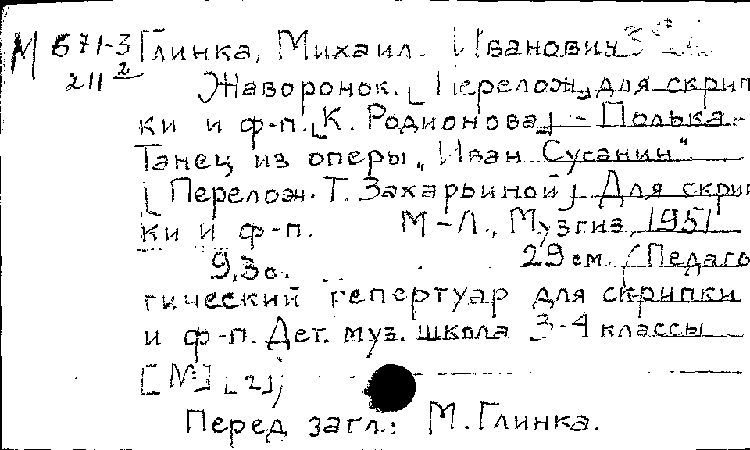 М 671-3 Глинка, Михаил Иванович
211 2 Жаворонок. [Перелож. для скрип
ки и ф-п. [К. Родионова] - Полька.-
Танец из оперы „Иван Сусанин".
[Перелож. Т. Захарьиной] Для скрип
ки и ф-п. М-Л., Музгиз, 1951
9,3с. 29 см. (Педаго
гический репертуар для скрипки
и ф-п. Дет. муз. школа 3-4 классы
[М] [2])
Перед загл.: М. Глинка.